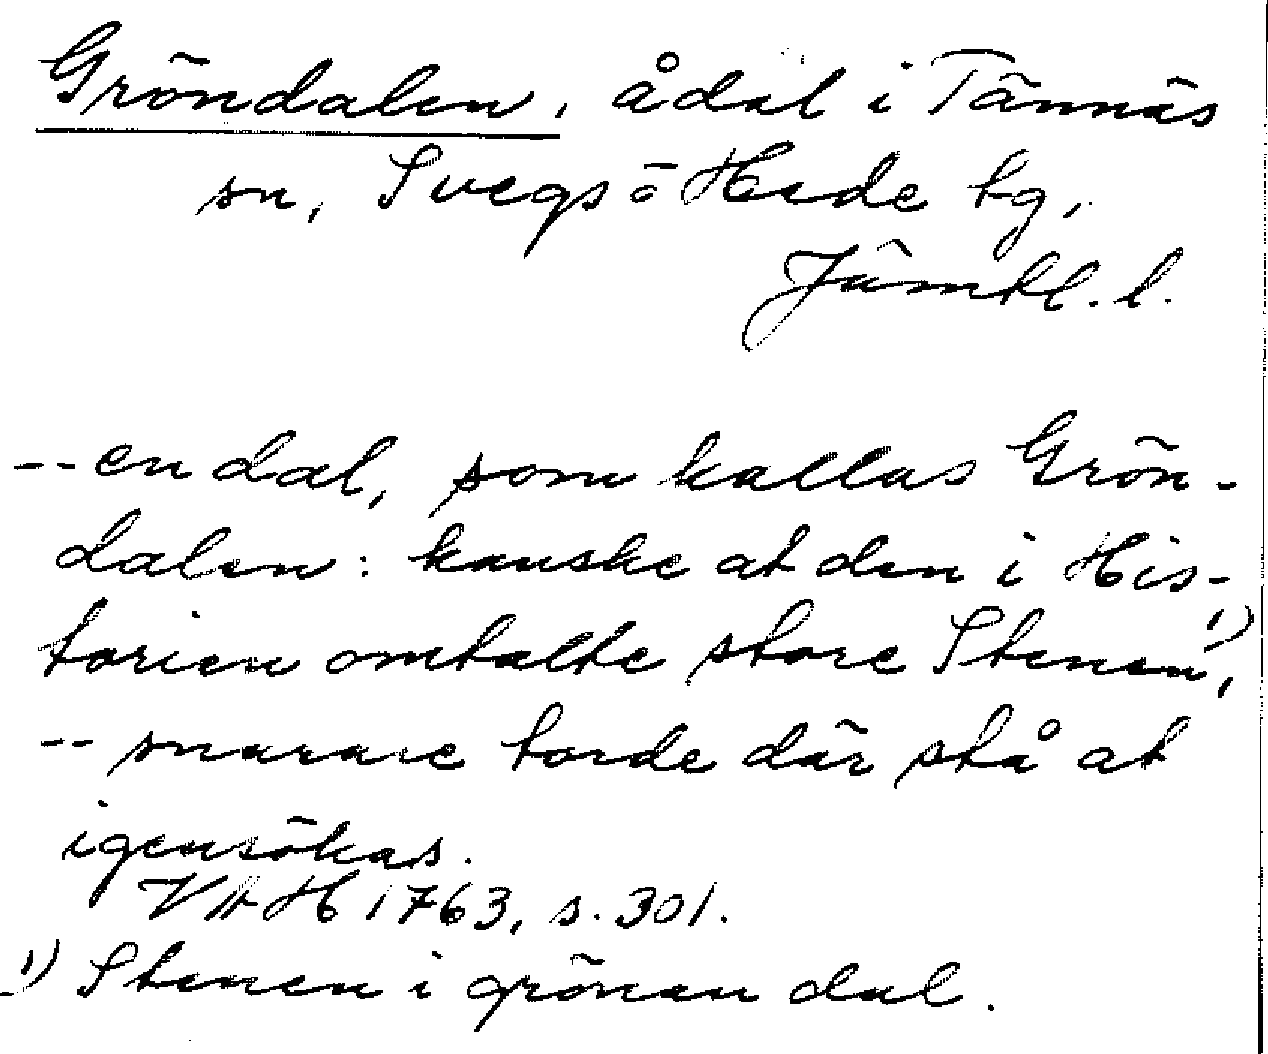 Gröndalen, ådal i Tännäs
sn, Svegs o Hede tg,
Jämtl. l.
-- en dal, som kallas Grön-
dalen: kanske at den i His-
torien omtalte store Stenen¹⁾,
-- snarare torde där stå at
igensökas.
VAH 1763, s. 301.
¹⁾ Stenen i grönan dal.